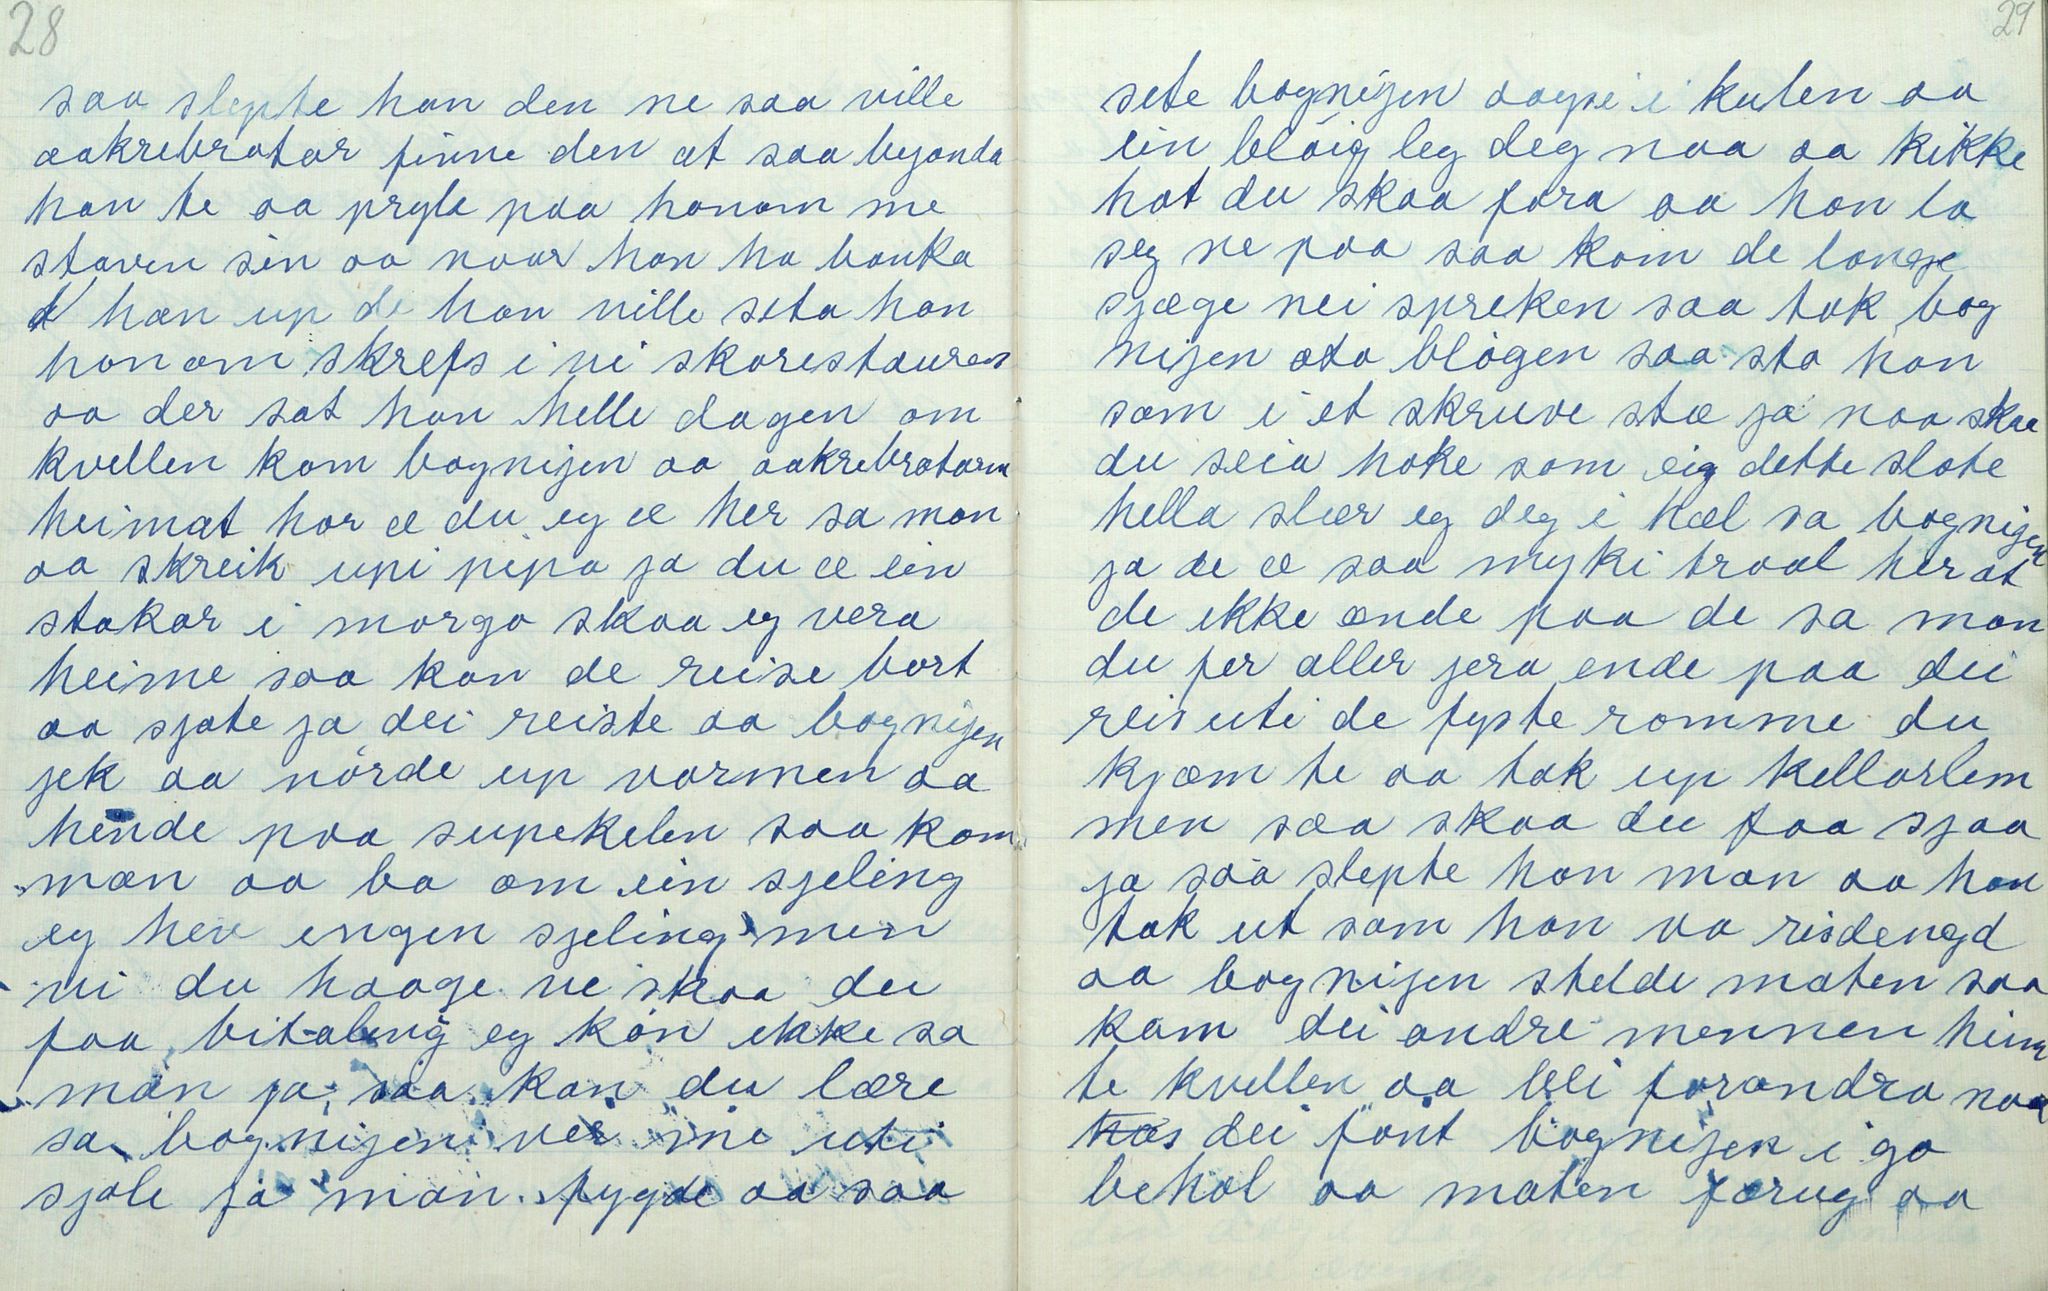 28
saa slepte han den ne saa ville
aakrebrøtar finne den at saa byonda
han te aa pryla paa honom me
staven sin aa naar han ha banka
han up de han ville seta han
honom skrefs i ni skorestauren
aa der sat han helle dagen om
kvellen kom bognijen aa aakrebrøtarn
heimat hor æ du eg æ her sa man
aa skreik upi pipa ja du æ ein
stakar i morgo skaa eg vera
heime saa kan de reise bort
aa sjøte ja dei reiste aa bognijen
jek aa nörde up varmen aa
hende paa supekelen saa kom
man aa ba om ein sjeling
eg heve engen sjeling men
vi du haage ve skaa du
faa bitaleng eg kan ikke sa
man ja saa kan du lære
sa bognijen ver me uti
sjøle ja man fygde aa saa
29
sete bognijen aaypse i kulen aa
ein blöig leg deg naa aa kikke
hot du skaa fora aa han la
seg ne paa saa kom de longe
sjæge nei spreken saa tok bog
nijen ata blögen saa sto han
som i et skruve stæ ja naa skaa
du seia hoke som eig dette slote
hella slær eg deg i hæl sa bognijen
ja de æ saa myki traal her at
de ikke ænde paa de sa man
du fer aller jera ende paa dei
reis uti de fyste romme du
kjæm te aa tak up kellarlem
men saa skaa du faa sjaa
ja saa slepte han man aa han
tok ut som han va risdengd
aa bognijen stelde maten saa
kom dei andre mennen heim
te kvellen aa blei forandra naar
dei fant bognijen i go
behol aa maten færug aa